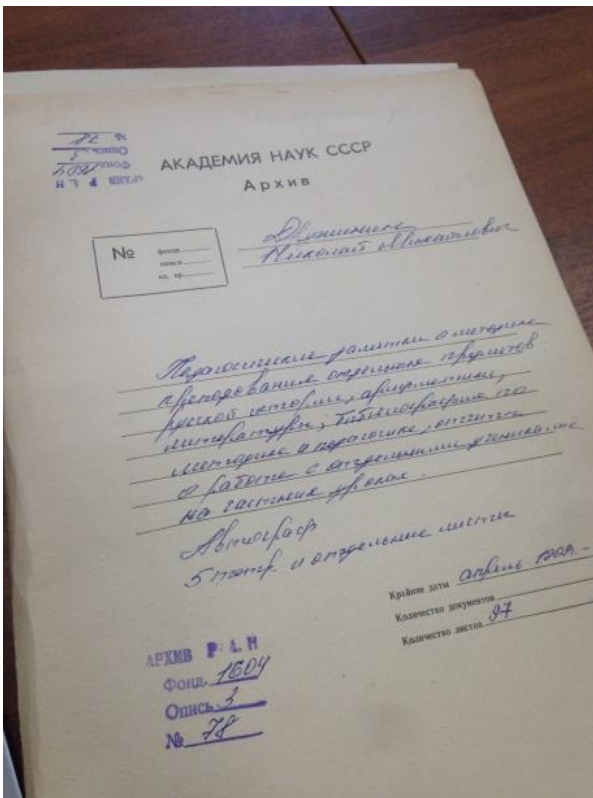 № 78
Опись 3
Фонд 1604
АРХИВ Р А Н
АКАДЕМИЯ НАУК СССР
Архив
№
фонда
описи
ед. хр.
Дружинин
Николай Михайлович
Педагогические заметки о методике
преподавания отдельных предметов:
русской истории, арифметики,
литературы; библиография по
методике и педагогике, отчеты
о работе с отдельными учениками
на частных уроках.
Автограф
5 тетр. и отдельные листы
Крайние даты апрель 1909. -
Количество документов
Количество листов 97
АРХИВ Р. А. Н
Фонд. 1604
Опись 3
№ 78